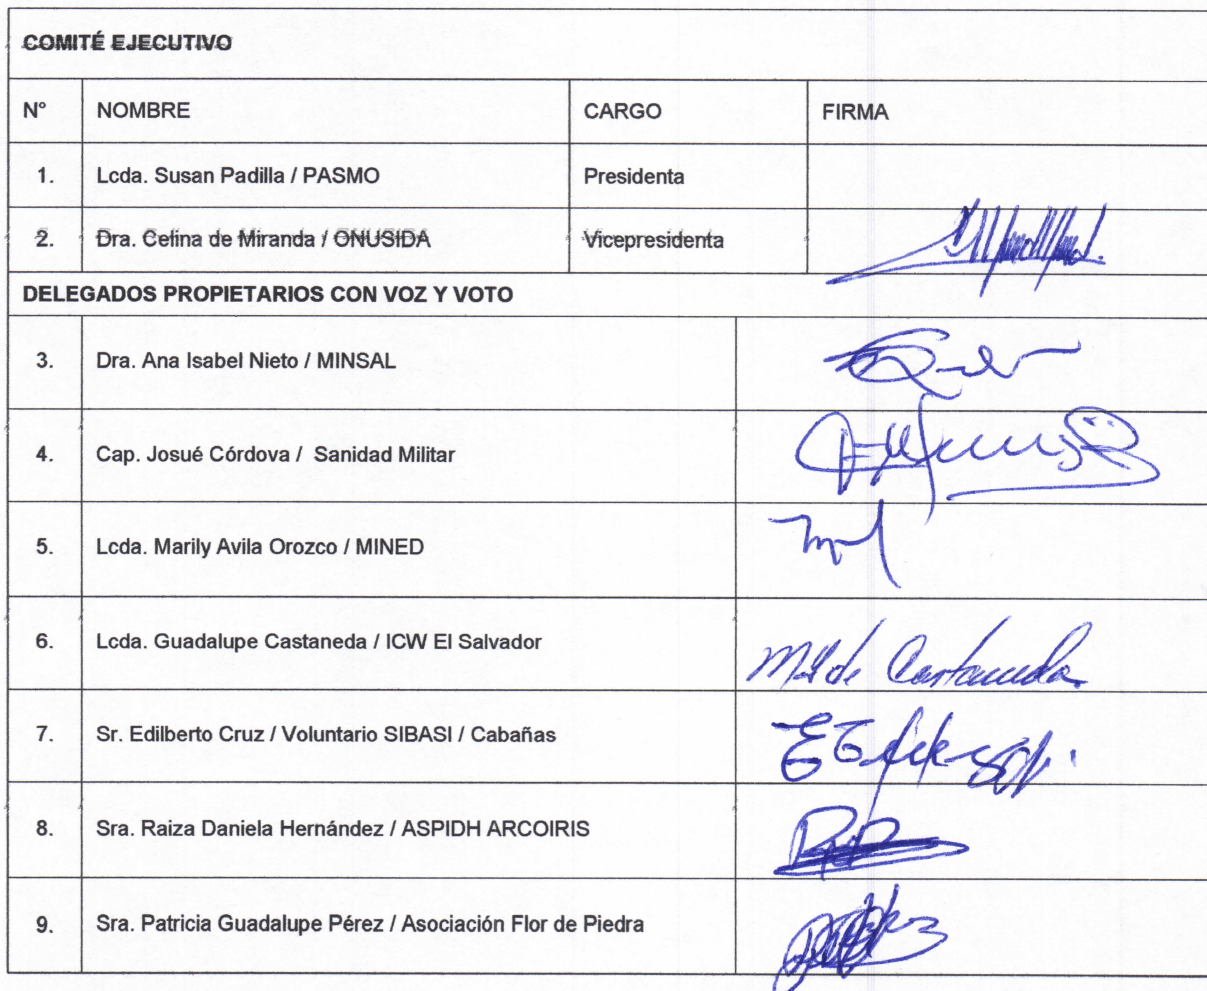 COMITÉ EJECUTIVO
N° NOMBRE CARGO FIRMA
1. Lcda. Susan Padilla / PASMO Presidenta
2. Dra. Celina de Miranda / ONUSIDA Vicepresidenta
DELEGADOS PROPIETARIOS CON VOZ Y VOTO
3. Dra. Ana Isabel Nieto / MINSAL
4. Cap. Josué Córdova / Sanidad Militar
5. Lcda. Marily Avila Orozco / MINED
6. Lcda. Guadalupe Castaneda / ICW El Salvador de Castaneda
7. Sr. Edilberto Cruz / Voluntario SIBASI / Cabañas
8. Sra. Raiza Daniela Hernández / ASPIDH ARCOIRIS
9. Sra. Patricia Guadalupe Pérez / Asociación Flor de Piedra